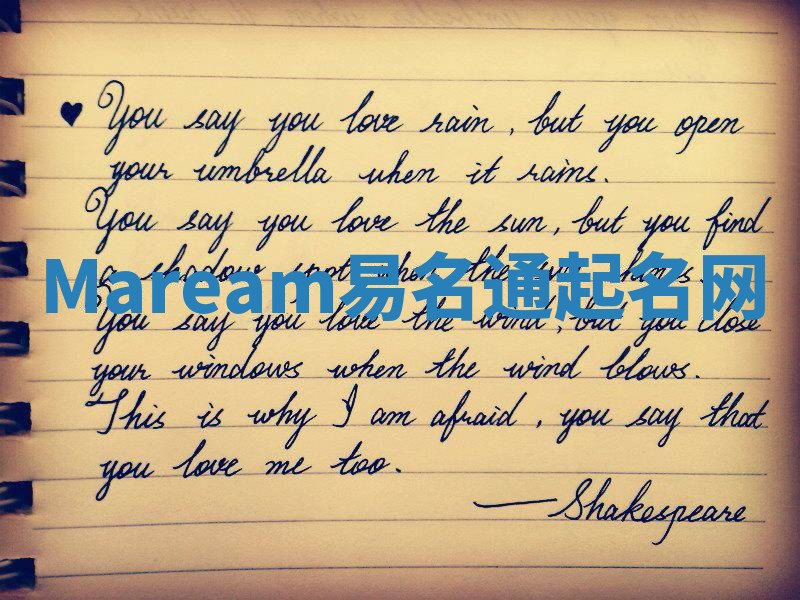 ♥ You say you love rain, but you open
your umbrella when it rains.
You say you love the sun, but you find
a shadow spot when the sun shines.
Maream易名通起名网
You say you love the wind, but you close
your windows when the wind blows.
This is why I am afraid, you say that
you love me too.
— Shakespeare